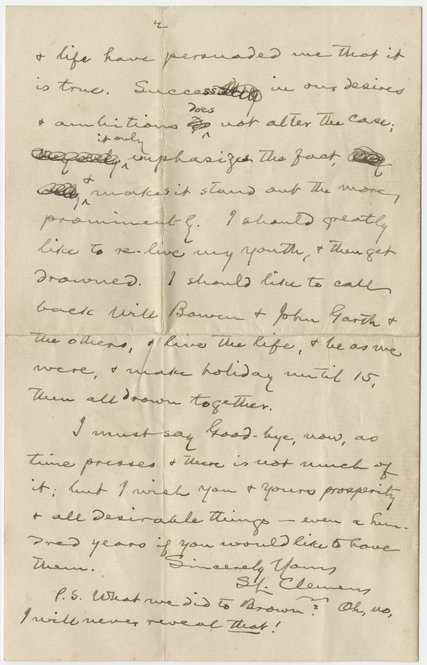 2
& life have persuaded me that it
is true. Success in our desires
& ambitions does not alter the case;
it only emphasizes the fact,
& makes it stand out the more
prominently. I should greatly
like to re-live my youth, & then get
drowned. I should like to call
back Will Bowen & John Garth &
the others, & live the life, & be as we
were, & make holiday until 15,
then all drown together.
I must say Good-bye, now, as
time presses & there is not much of
it; but I wish you & yours prosperity
& all desirable things — even a hun-
dred years if you would like to have
them. Sincerely Yours
SL. Clemens
P.S. What we did to Brown? Oh, no,
I will never reveal that!